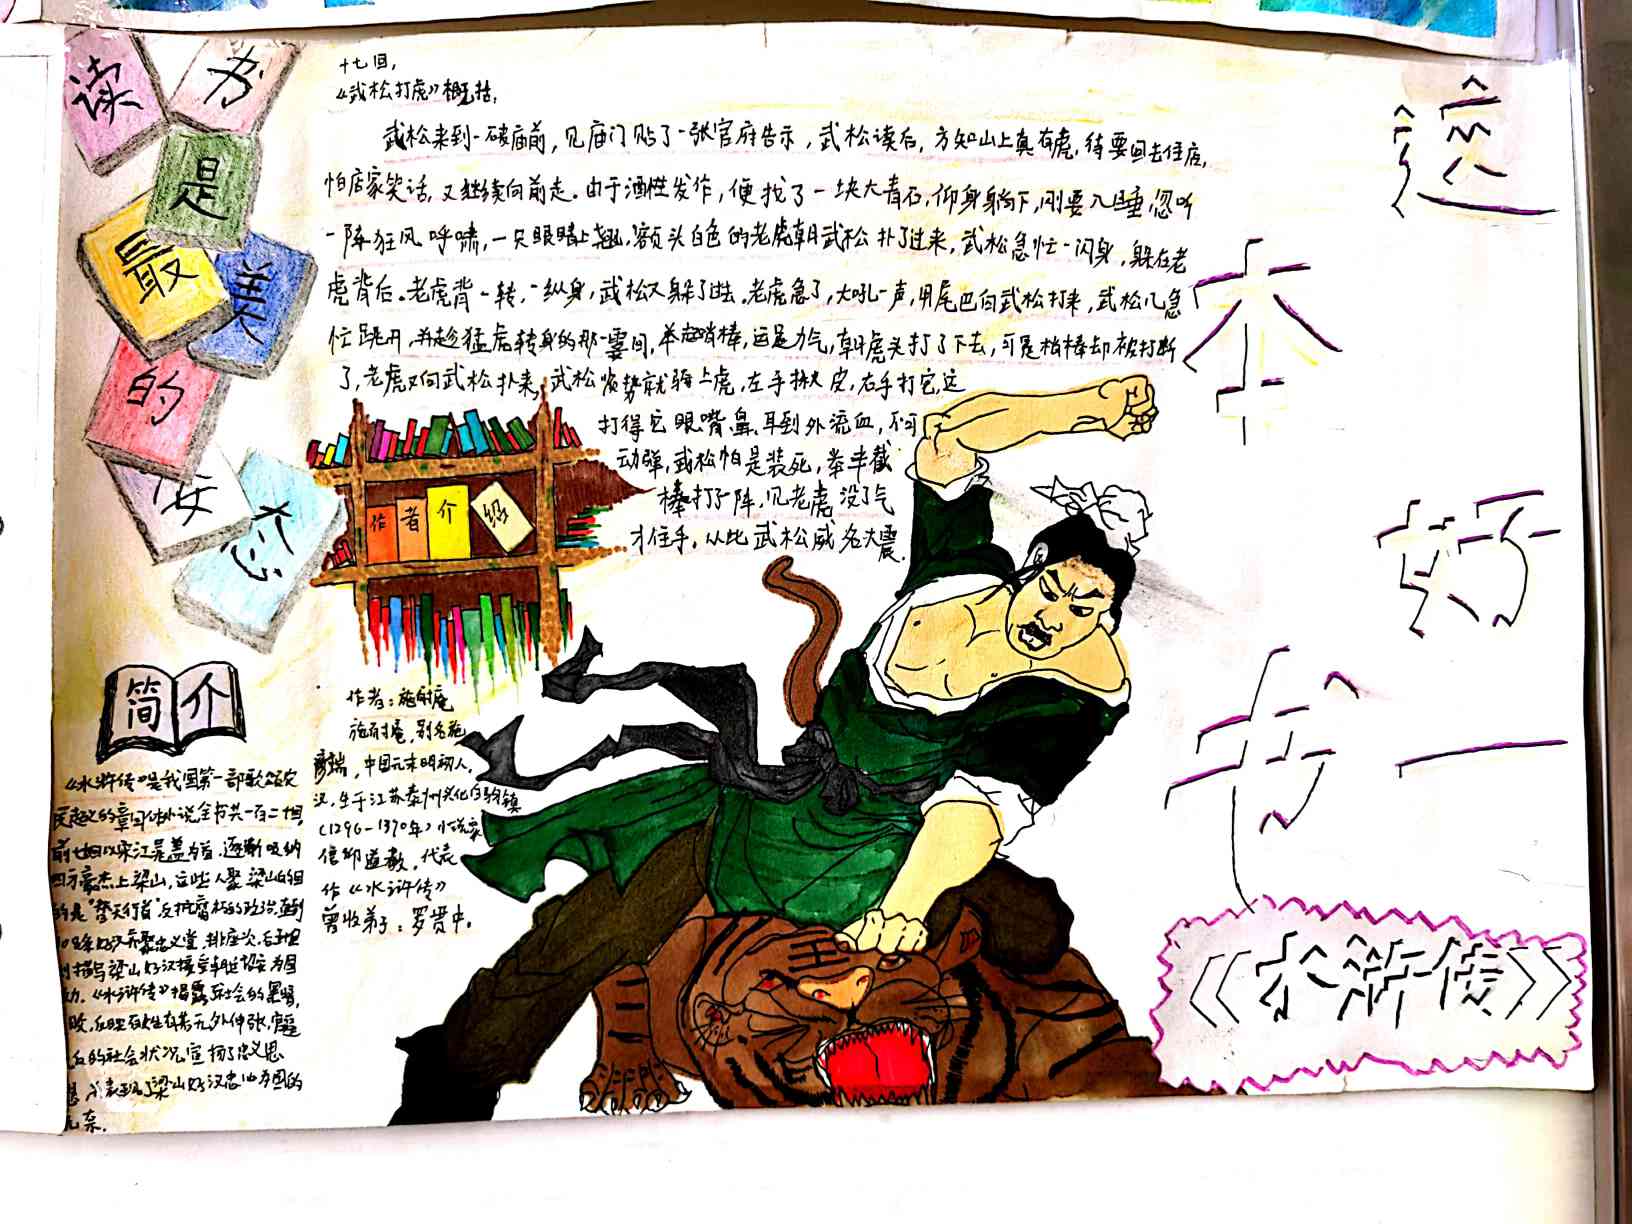 读书是最美的姿态
十七回,
《武松打虎》概括,
武松来到一破庙前,见庙门贴了一张官府告示,武松读后,方知山上真有虎,待要回去住店,
怕店家笑话,又继续向前走。由于酒性发作,便找了一块大青石,仰身躺下,刚要入睡,忽听
一阵狂风呼啸,一只眼睛上翘,额头白色的老虎朝武松扑了过来,武松急忙一闪身,躲在老
虎背后。老虎背一转,一纵身,武松又躲了过去。老虎急了,大吼一声,用尾巴向武松打来,武松又急
忙跳开,并趁猛虎转身的那一霎间,举起哨棒,运足力气,朝虎头打了下去,可是梢棒却被打断
了,老虎又向武松扑来,武松顺势就骑上虎,左手揪皮,右手打它,这
打得它眼嘴鼻耳到外流血,不可
动弹,武松怕是装死,举半截
棒打了阵,见老虎没了气
才住手。从此武松威名大震.
作者介绍
作者:施耐庵
施耐庵,别名施
彦瑞,中国元末明初人,
汉,生于江苏泰州兴化白驹镇
(1296-1370年)小说家
信仰道教,代表
作《水浒传》
曾收弟子:罗贯中。
简介
《水浒传》是我国第一部歌颂农
民起义的章回体小说,全书共一百二十回,
前七回以宋江晁盖为首,逐渐吸纳
四方豪杰上梁山,这些人聚梁山的目
的是"替天行道"反抗腐朽的政治,直到
108条好汉齐聚忠义堂,排座次,
描写梁山好汉接受朝廷招安为国
力.《水浒传》揭露了社会的黑暗,
后的社会状况,宣扬了忠义思
想,表现了梁山好汉忠心为国的
无奈.
这本好书一
《水浒传》